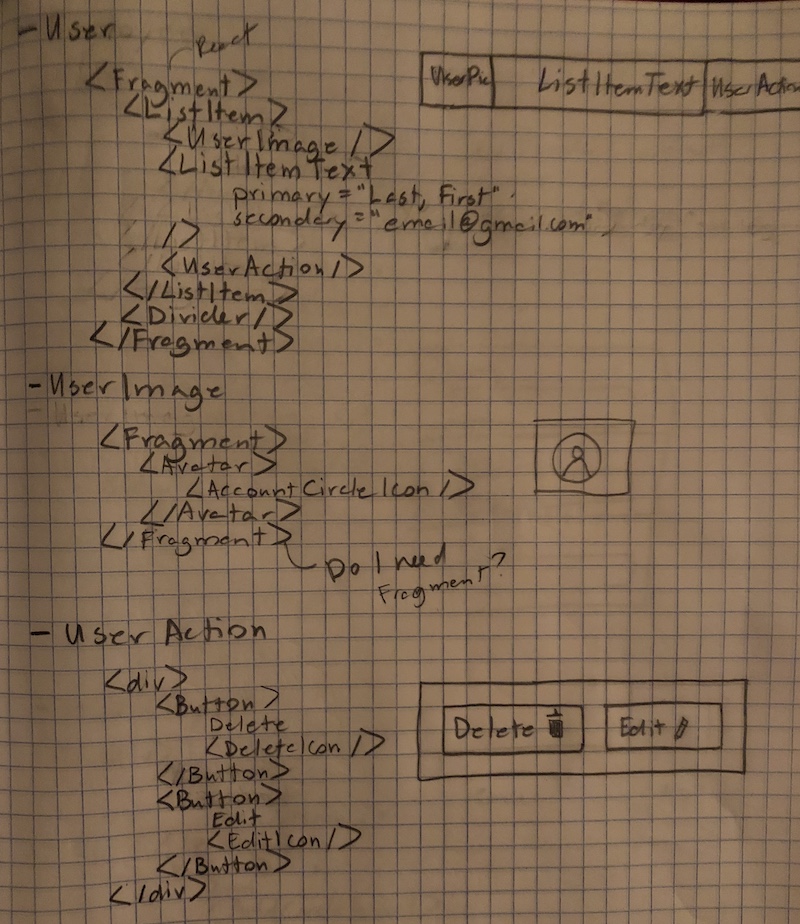 - User
React
<Fragment>
<ListItem>
<UserImage />
<ListItemText
primary="Last, First"
secondary="email@gmail.com"
/>
<UserAction/>
</ListItem>
<Divider/>
</Fragment>
UserPic ListItemText UserAction
- UserImage
<Fragment>
<Avatar>
<AccountCircleIcon />
</Avatar>
</Fragment>
Do I need
Fragment?
- User Action
<div>
<Button>
Delete
<DeleteIcon />
</Button>
<Button>
Edit
<EditIcon />
</Button>
</div>
Delete Edit